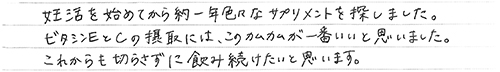 妊活を始めてから約一年色々なサプリメントを探しました。
ビタミンEとCの摂取には、このカムカムが一番いいと思いました。
これからも切らさずに飲み続けたいと思います。